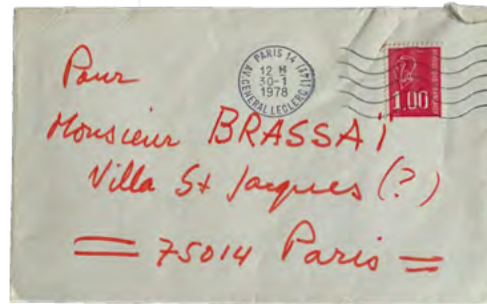 PARIS 14 (14E)
12 H
30-1
1978
AV. GENERAL LECLERC
1,00
Pour
Monsieur BRASSAÏ
Villa St Jacques (?)
75014 Paris